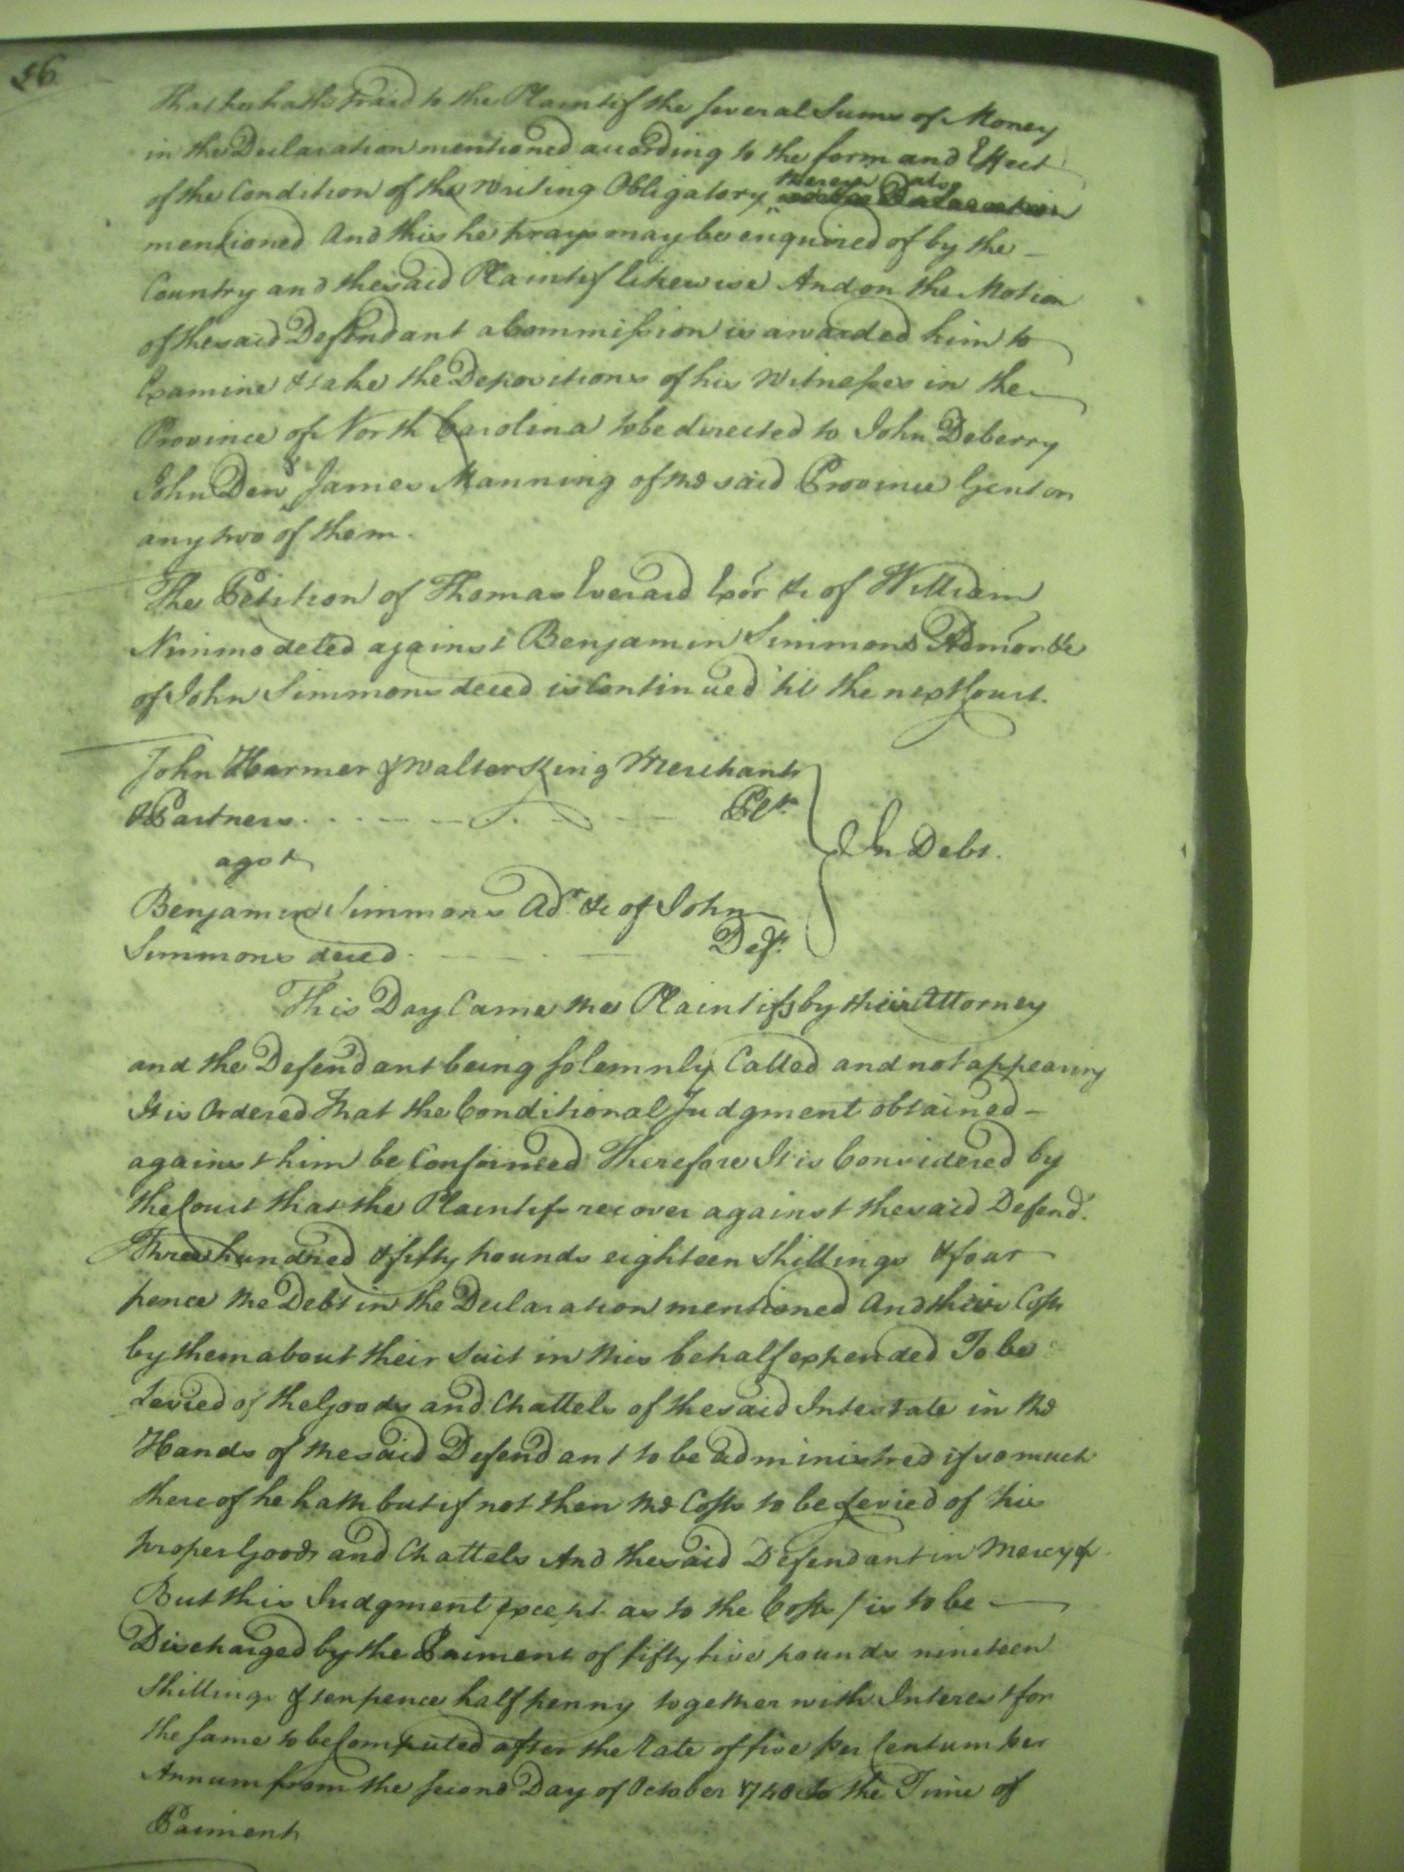 56
that he hath paid to the Plaintif the several Sums of Money
in the Declaration mentioned according to the form and Effect
of the Condition of the Writing Obligatory therein also
mentioned And this he prays may be enquired of by the
Country and the said Plaintif likewise And on the Motion
of the said Defendant a Commission is awarded him to
Examine & take the Depositions of his Witnesses in the
Province of North Carolina to be directed to John Deberry
John Dew & James Manning of the said Province Gent or
any two of them.
The Petition of Thomas Everard Exor &c of William
Nimmo deced against Benjamin Simmons Admor &c
of John Simmons deced is Continued 'til the next Court.
John Harmer & Walter King Merchants
& Partners Plts
agst
In Debt.
Benjamin Simmons Adr. &c of John
Simmons deced Deft.
This Day Came the Plaintifs by their Attorney
and the Defendant being solemnly Called and not appearing
It is Ordered That the Conditional Judgment obtained
against him be Confirmed Therefore It is Considered by
the Court that the Plaintifs recover against the said Defend.
Three hundred & fifty pounds eighteen Shillings & four
pence the Debt in the Declaration mentioned And their Costs
by them about their Suit in this behalf expended To be
Levied of the Goods and Chattels of the said Intestate in the
Hands of the said Defendant to be administred if so much
thereof he hath but if not then the Costs to be Levied of his
proper Goods and Chattels And the said Defendant in Mercy &c
But this Judgment except as to the Costs / is to be
Discharged by the Paiment of fifty five pounds nineteen
Shillings & ten pence half penny together with Interest for
the same to be Computed after the rate of five per Centum per
Annum from the second Day of October 1740 to the Time of
Paiment